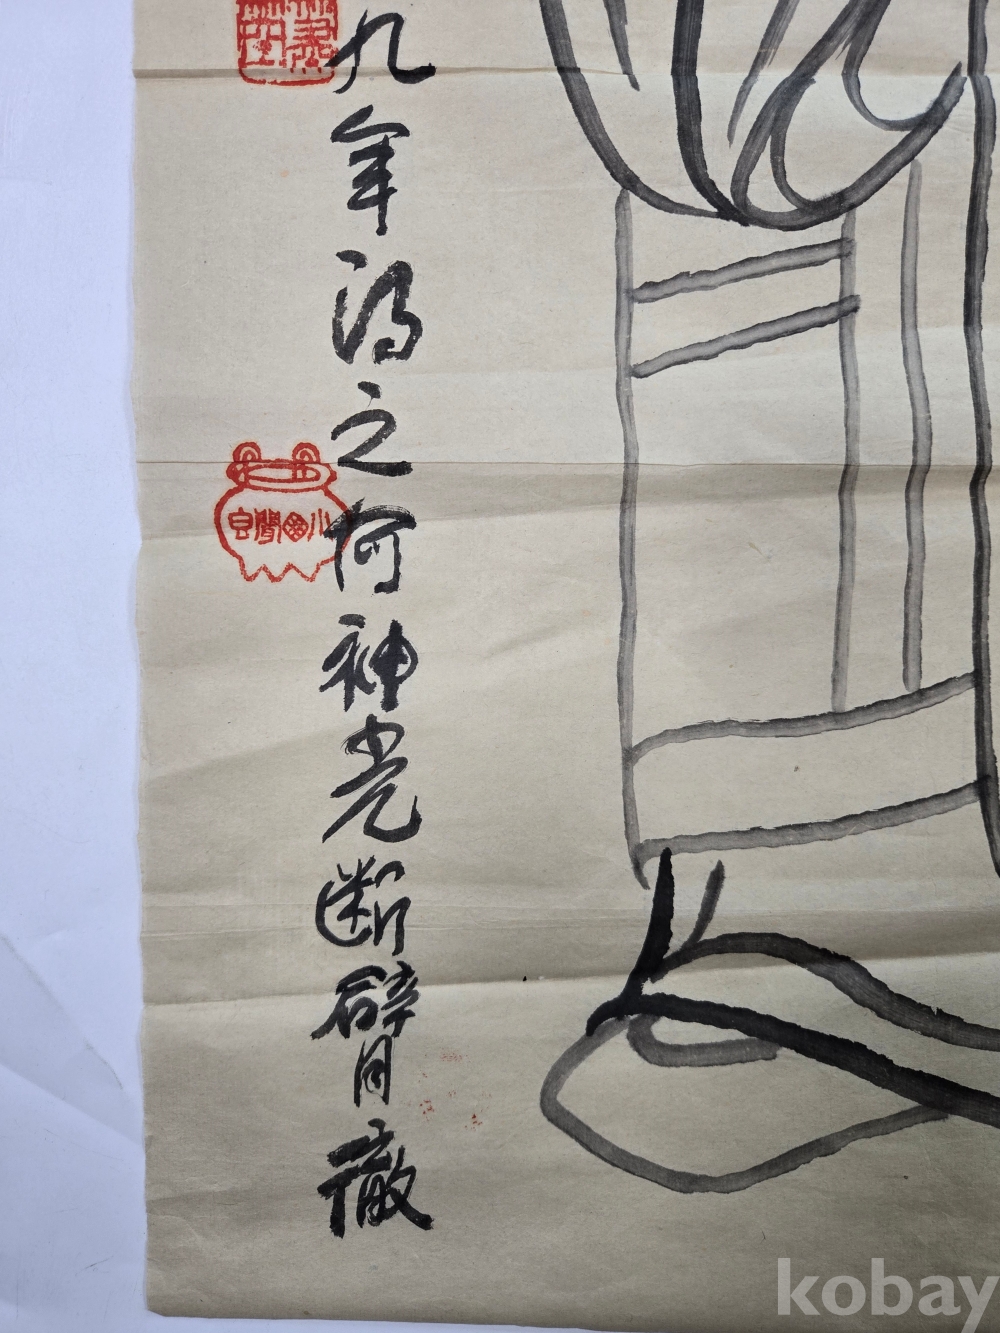 九年得之何神光斷臂徹
kobay